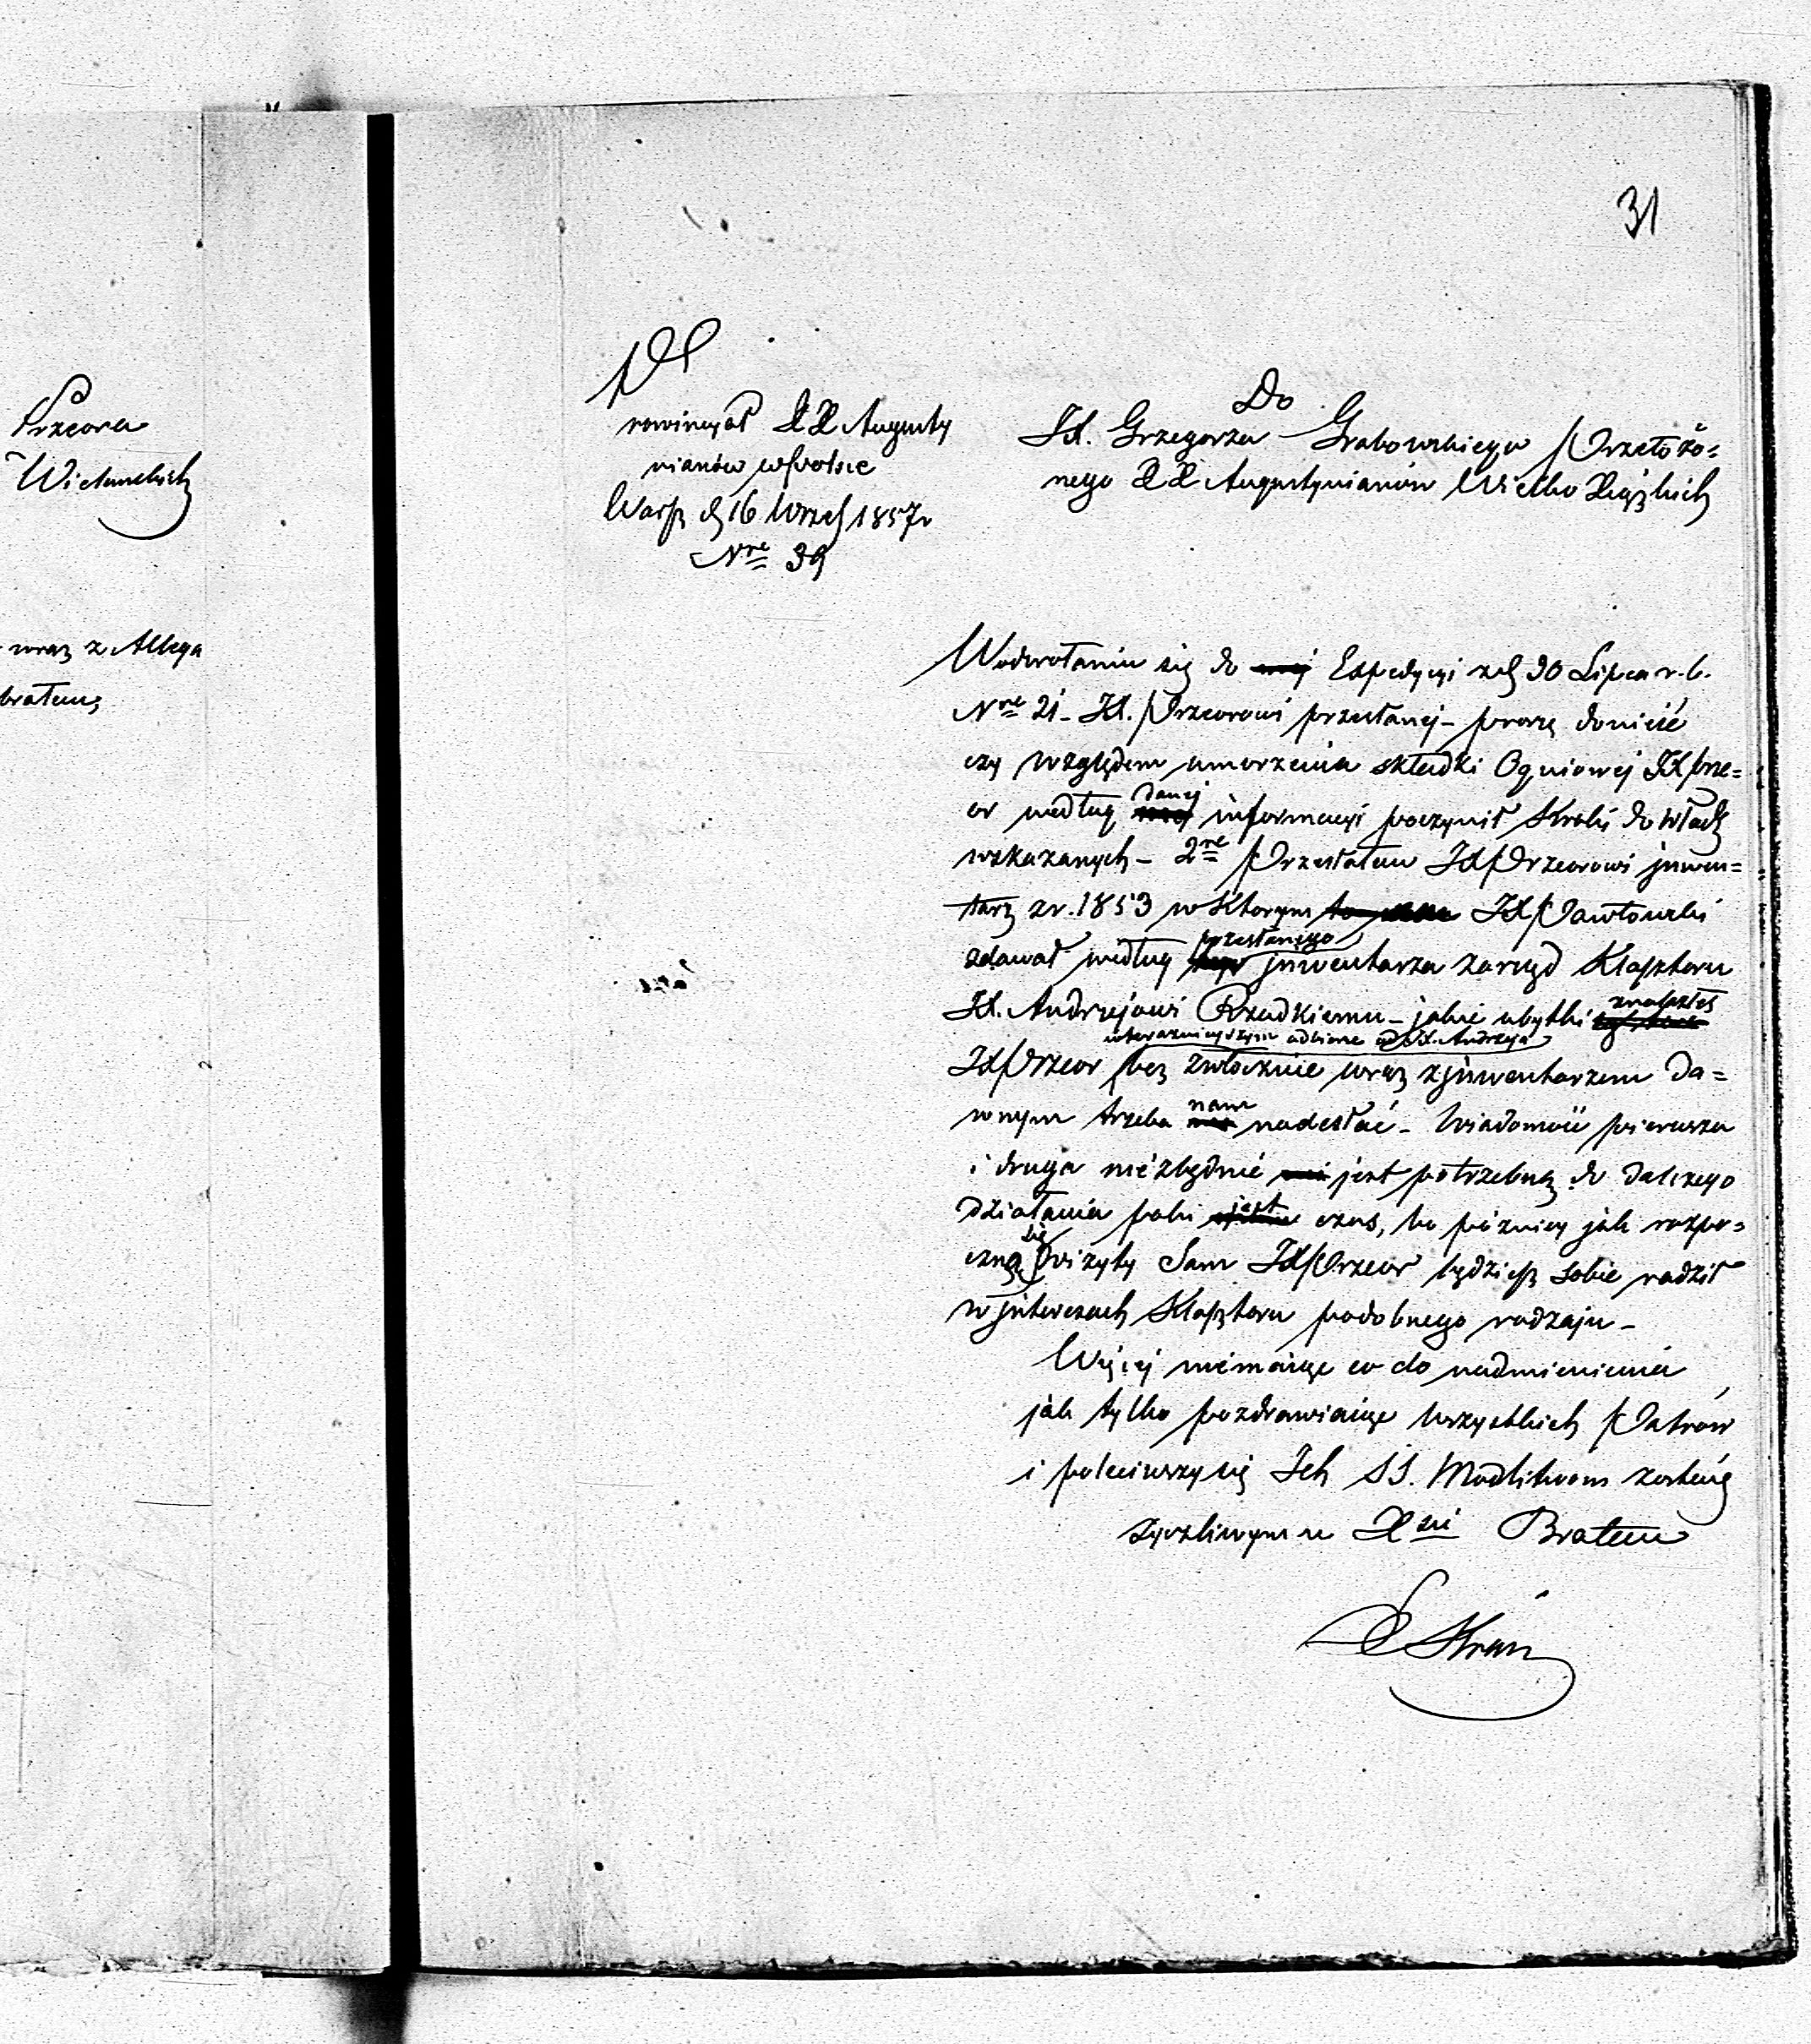 Przeora
Wieluńskich
wraz z Allega
bratem,
31
Prowincyał XX Augusty
nianów w Polsce
Warsz d 16 Wrześ 1857 r
Nre 39
Do
JX. Grzegorza Grabowskiego Przełożo=
nego XX Augustynianów Wielko Xiązkich
W odwołaniu się do Expedycyi z d 30 Lipca r. b.
Nre 21 - JX. Przeorowi przesłanej - proszę donieść
czy względem umorzenia składki Ogniowej JX Prze=
or według danej informacyi poczynił Kroki do Władz
wskazanych - 2re Przesłałem JX Przeorowi jnwen=
tarz z r. 1853 w Ktorym JX Pawłowski
zdawał według przesłanego jnwentarza zarząd Klasztoru
JX. Andrzejowi Rzadkiemu - jakie ubytki znalazłeś
odbiorze od JX. Andrzeja
JX Przeor bez zwłocznie wraz z jnwentarzem da=
wnym trzeba nam nadesłać - Wiadomość pierwsza
i druga niezbędnie jest potrzebną do dalszego
działania poki jest czas, bo pózniey jak rozpo=
czną się Wizyty Sam JX Przeor będziesz sobie radził
w jnteresach Klasztoru podobnego rodzaju -
Więcej niemaiąc co do nadmienienia
jak tylko pozdrawiaiąc wszystkich Patrów
i poleciwszy się Ich SS. Modlitwom zostaię
życzliwym w Xsie Bratem